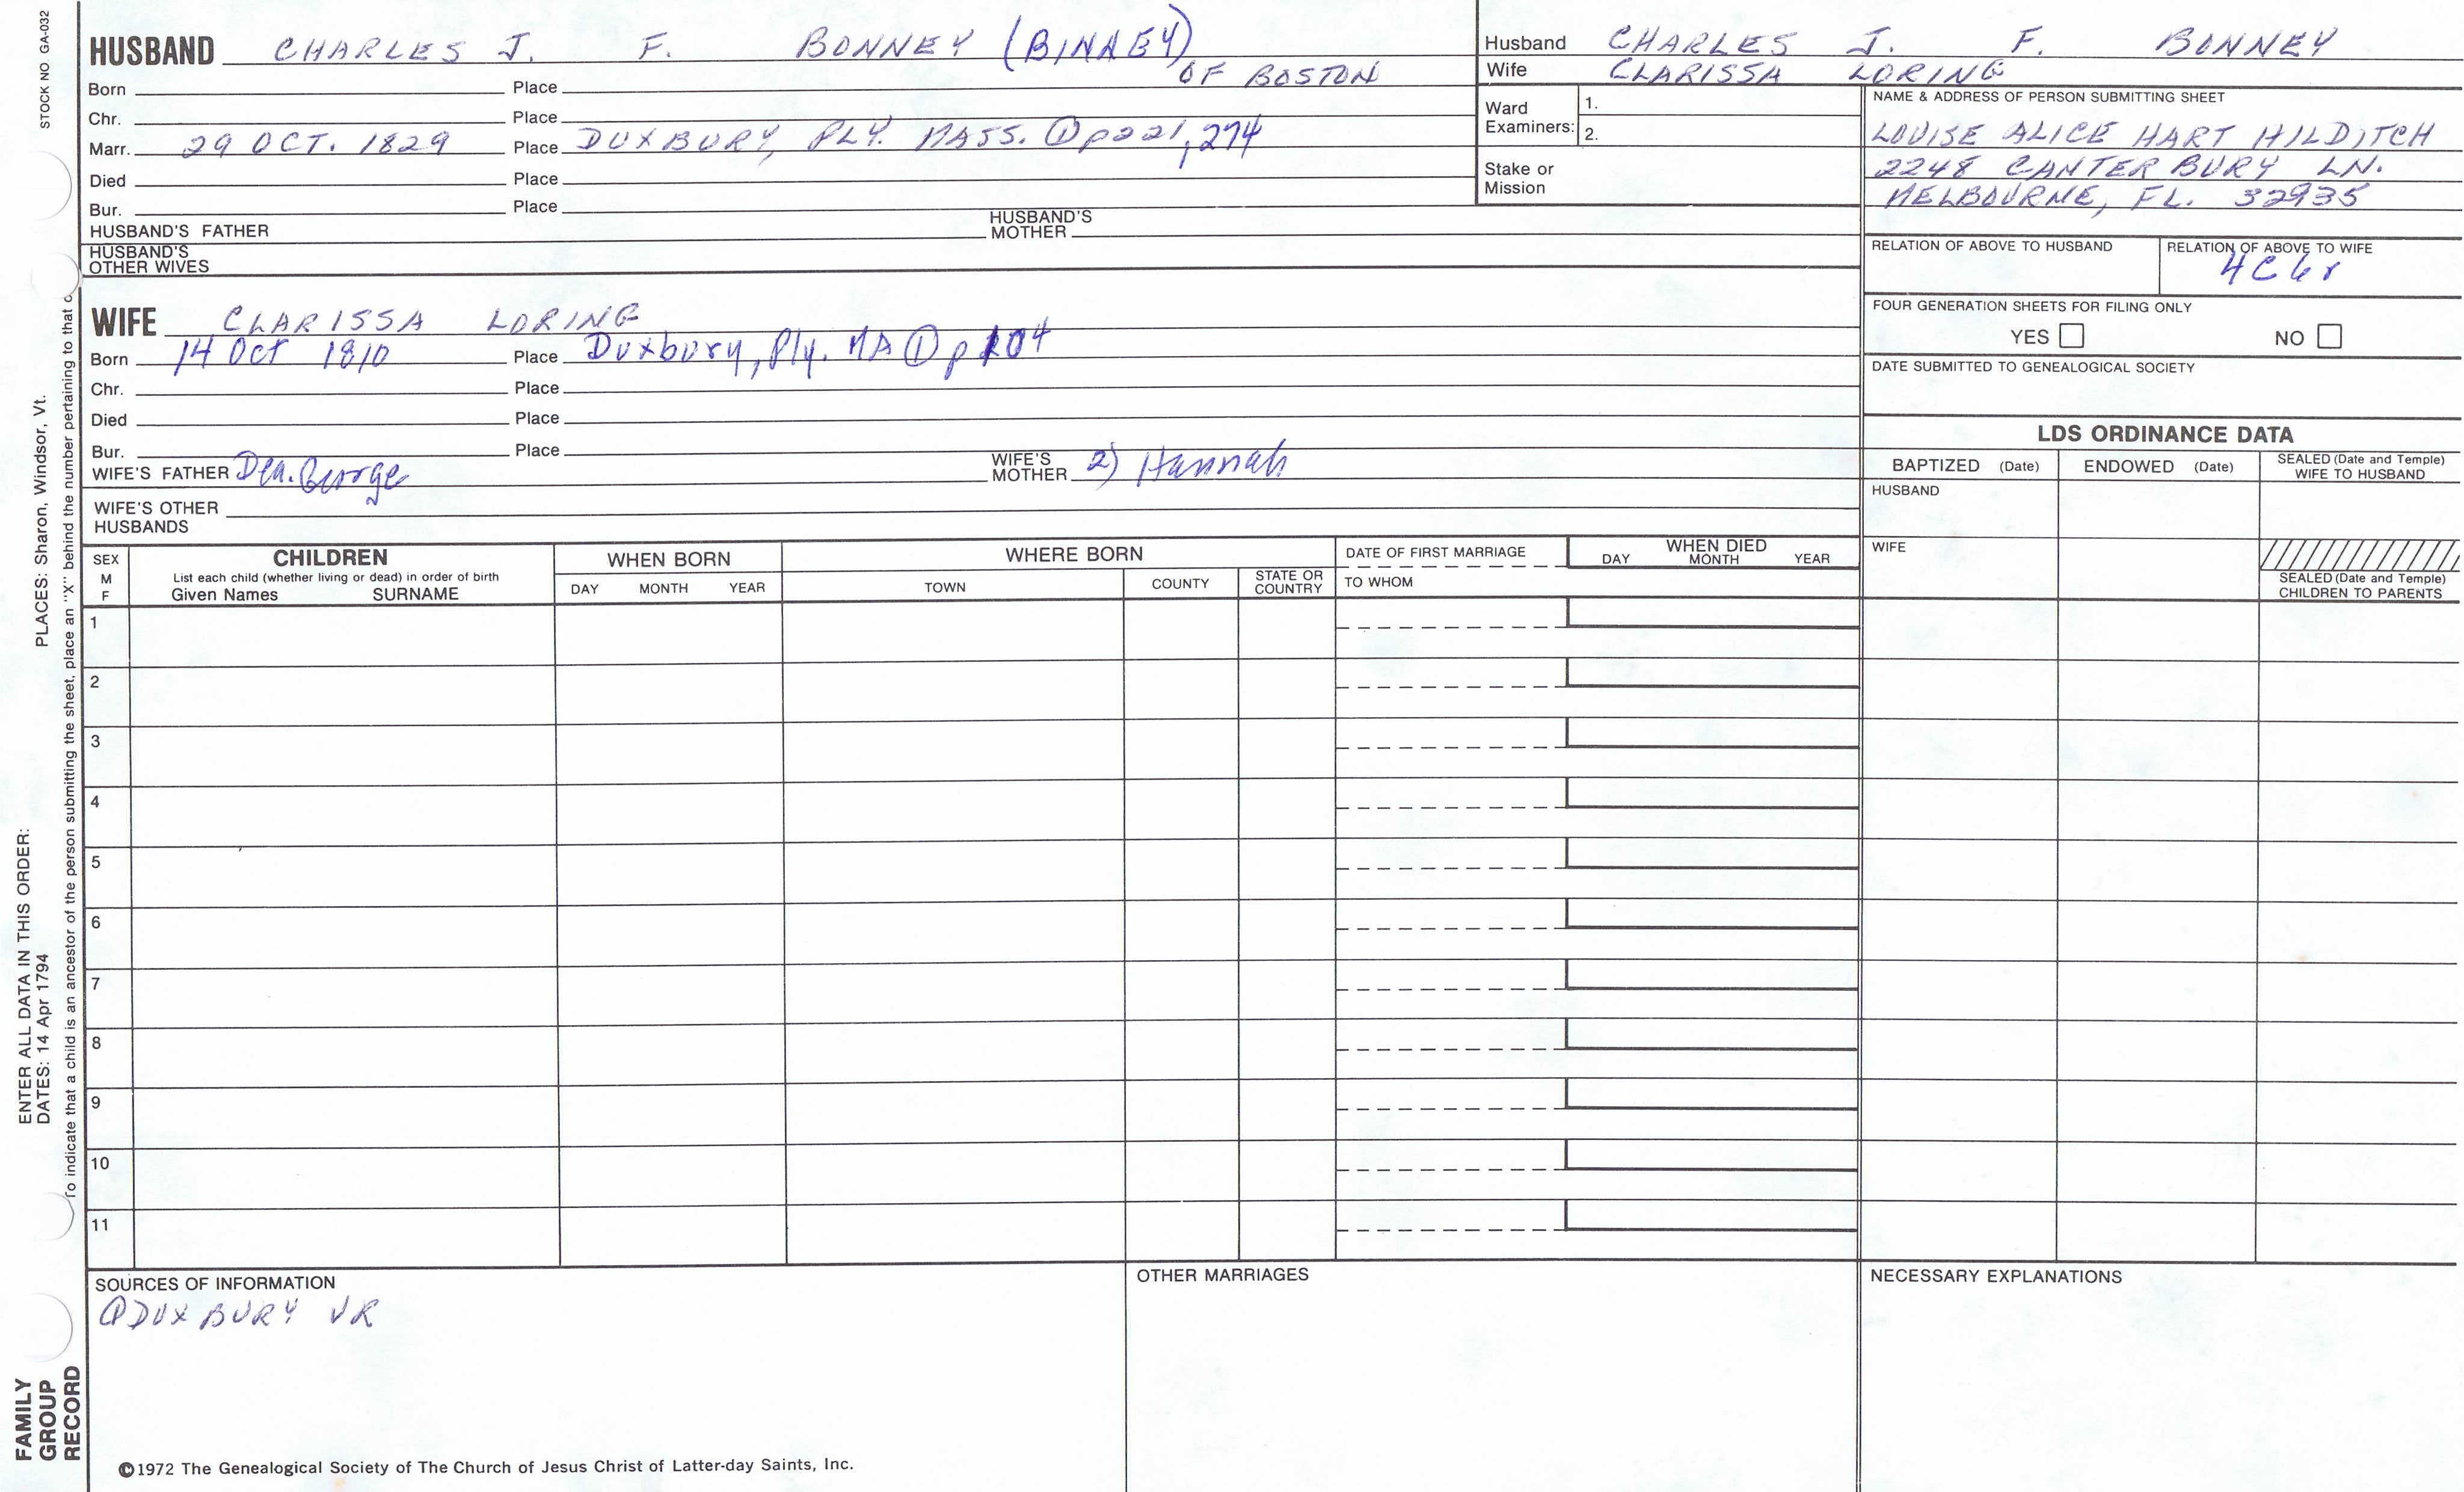 STOCK NO GA-032
HUSBAND CHARLES J. F. BONNEY (BINNEY)
OF BOSTON
Born Place
Chr. Place
Marr. 29 OCT. 1829 Place DUXBURY, PLY. MASS. ① p221, 274
Died Place
Bur. Place
HUSBAND'S FATHER HUSBAND'S MOTHER
HUSBAND'S OTHER WIVES
Husband CHARLES J. F. BONNEY
Wife CLARISSA LORING
Ward Examiners: 1.
2.
Stake or Mission
NAME & ADDRESS OF PERSON SUBMITTING SHEET
LOUISE ALICE HART HILDITCH
2248 CANTERBURY LN.
MELBOURNE, FL. 32935
RELATION OF ABOVE TO HUSBAND
RELATION OF ABOVE TO WIFE
4C6r
FOUR GENERATION SHEETS FOR FILING ONLY
YES NO
DATE SUBMITTED TO GENEALOGICAL SOCIETY
WIFE CLARISSA LORING
Born 14 Oct 1810 Place Duxbury, Ply. MA ① p 104
Chr. Place
Died Place
Bur. Place
WIFE'S FATHER Dea. George WIFE'S MOTHER 2) Hannah
WIFE'S OTHER HUSBANDS
LDS ORDINANCE DATA
BAPTIZED (Date) ENDOWED (Date) SEALED (Date and Temple) WIFE TO HUSBAND
HUSBAND
WIFE
SEALED (Date and Temple) CHILDREN TO PARENTS
SEX M F
CHILDREN
List each child (whether living or dead) in order of birth
Given Names SURNAME
WHEN BORN
DAY MONTH YEAR
WHERE BORN
TOWN COUNTY STATE OR COUNTRY
DATE OF FIRST MARRIAGE
TO WHOM
WHEN DIED
DAY MONTH YEAR
1
2
3
4
5
6
7
8
9
10
11
SOURCES OF INFORMATION
① DUXBURY VR
OTHER MARRIAGES
NECESSARY EXPLANATIONS
©1972 The Genealogical Society of The Church of Jesus Christ of Latter-day Saints, Inc.
FAMILY GROUP RECORD
ENTER ALL DATA IN THIS ORDER:
DATES: 14 Apr 1794
PLACES: Sharon, Windsor, Vt.
To indicate that a child is an ancestor of the person submitting the sheet, place an "X" behind the number pertaining to that